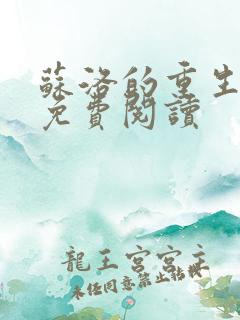 蘇洛的重生
免費閱讀
龍王宮宮主
未經同意禁止轉載